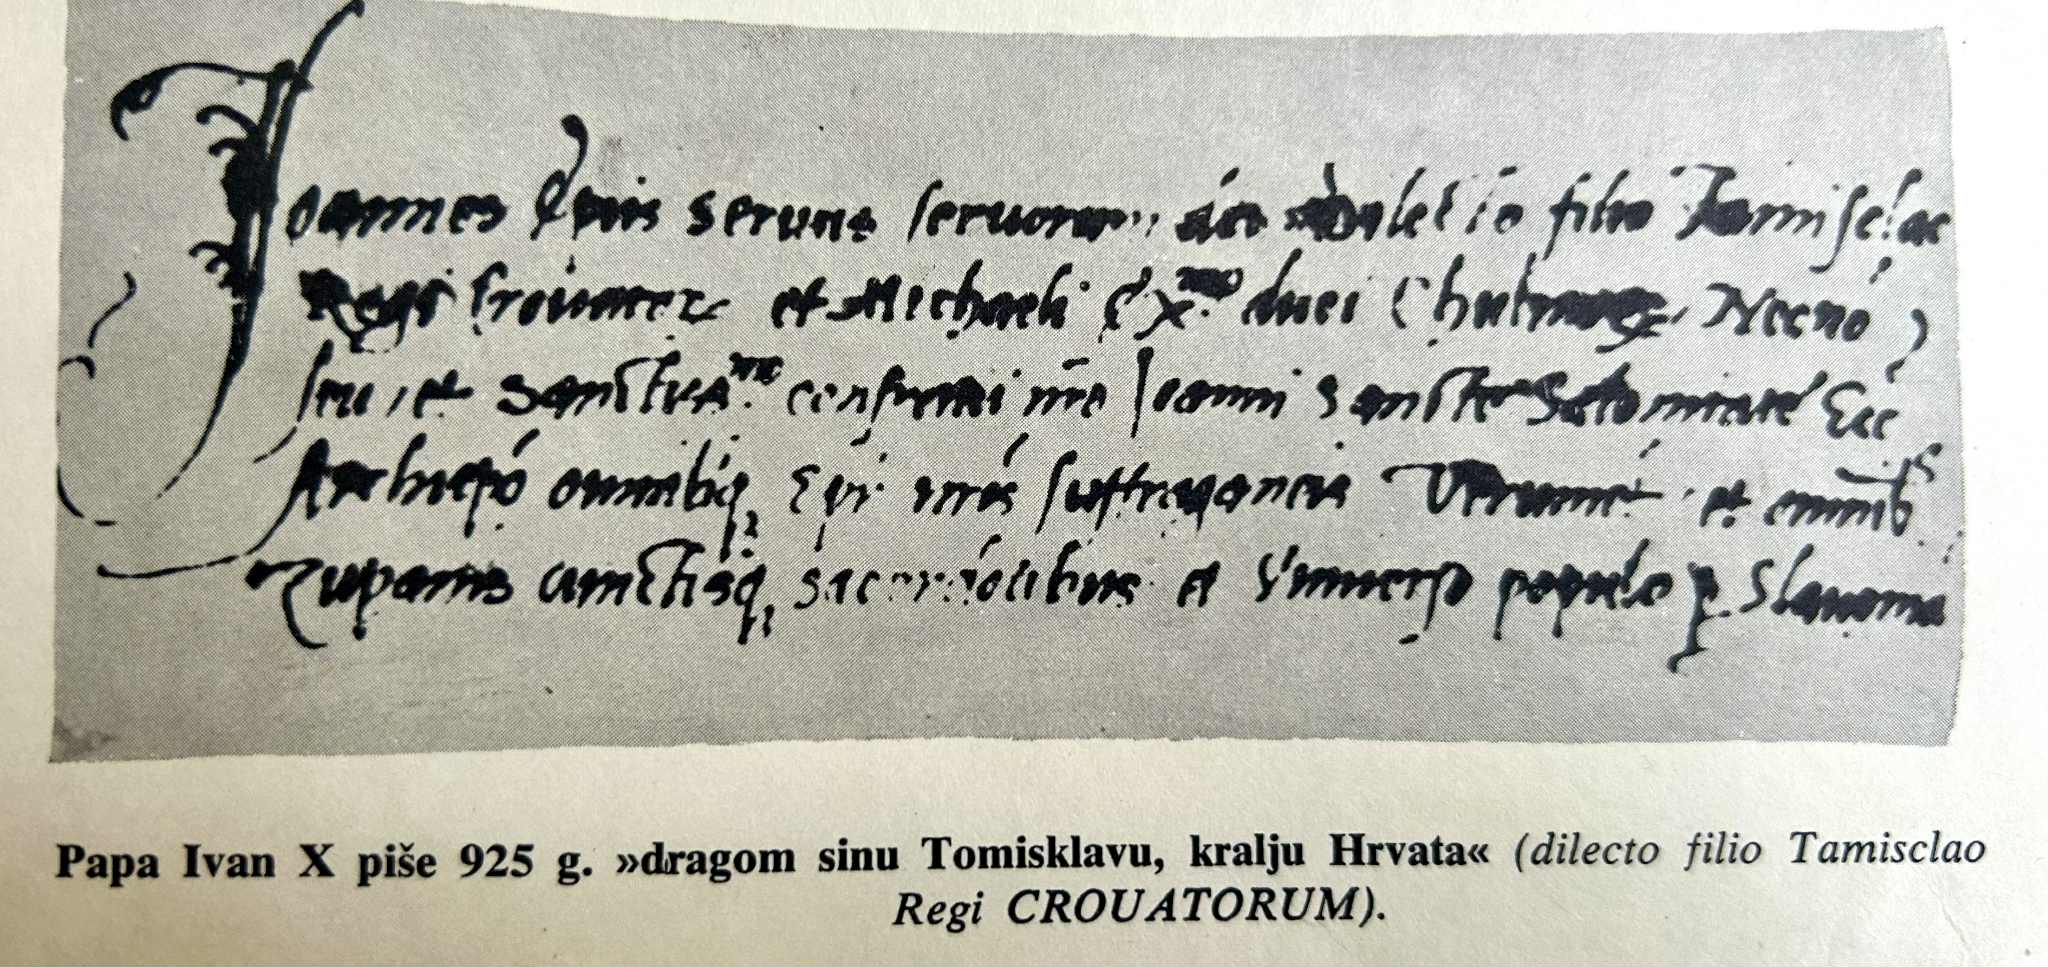 Joannes Ep̄us seruus seruorum dei dilecto filio Tamisclao
Regi Crouatorum et Michaeli Exmo duci Chulmorum, Necnó
seu, et sanctissmo confratri nr̄o Joanni sanctæ Salonitane Ecc
Archiepó omnibusq, Epis nris suffraganeis Verumet. et omnib9
Zupanis cunctisq, sacerdotibus et Vniuerso populo p. Slauonia
Papa Ivan X piše 925 g. »dragom sinu Tomisklavu, kralju Hrvata« (dilecto filio Tamisclao
Regi CROUATORUM).